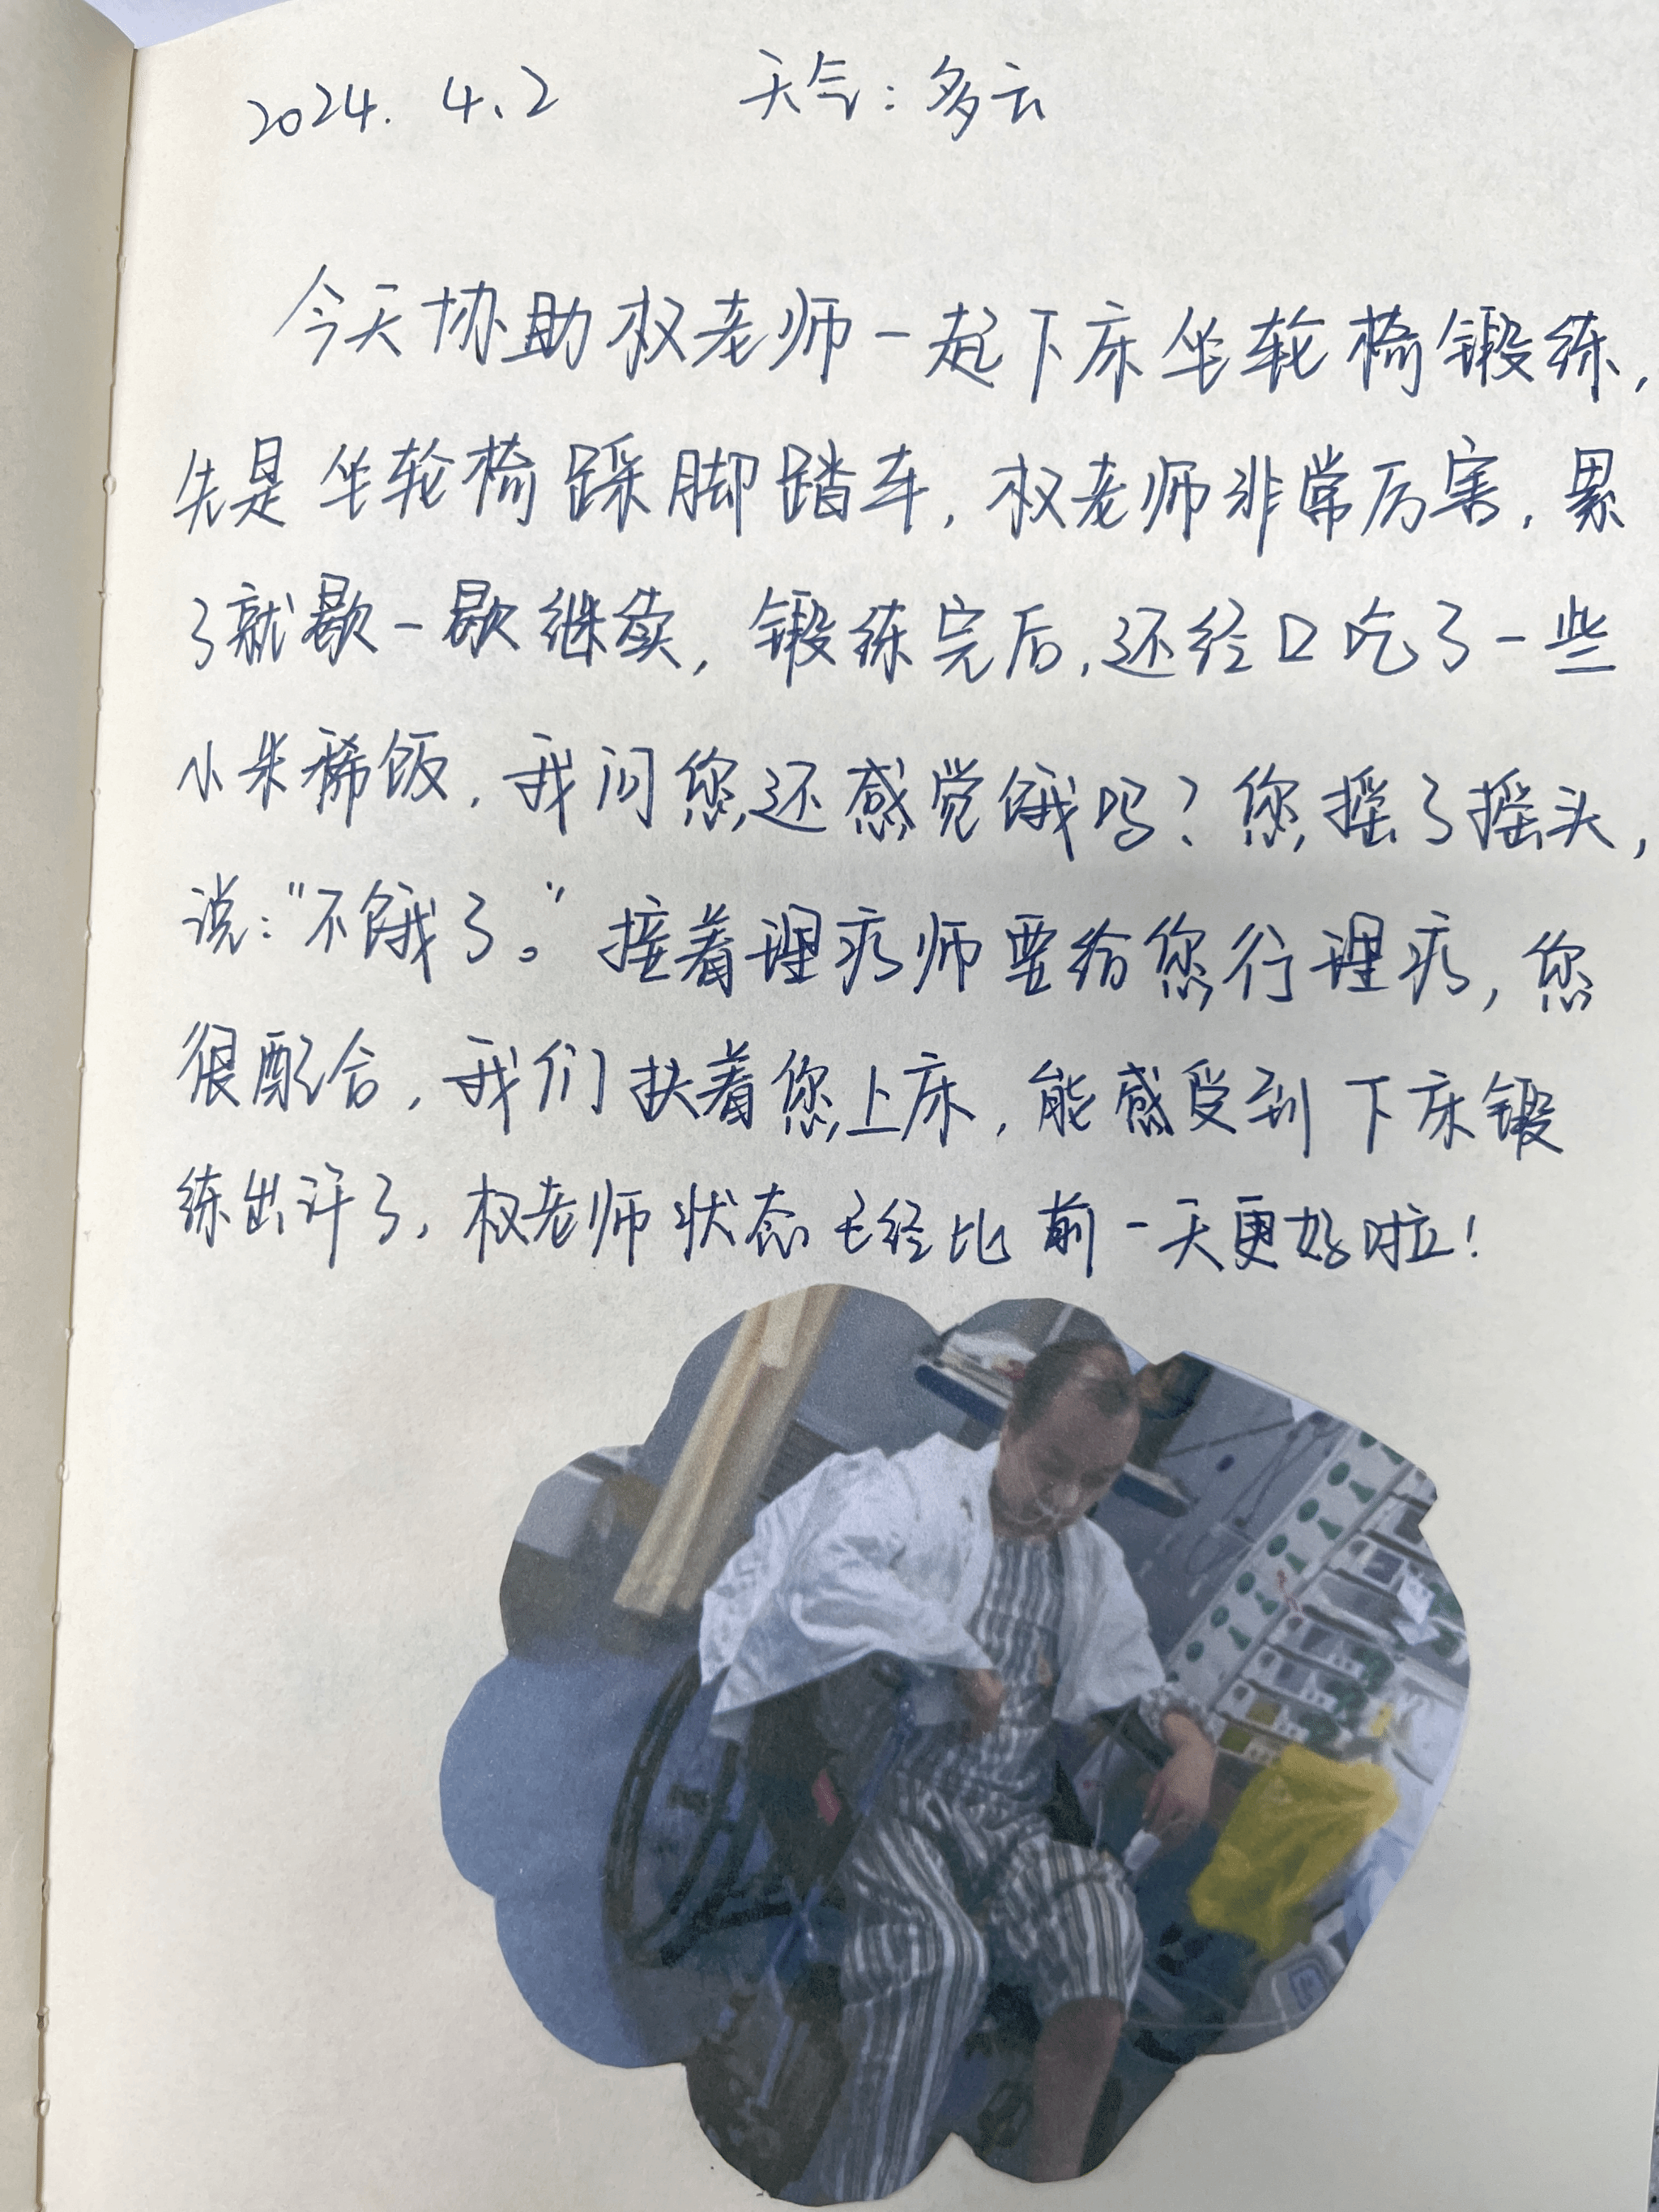 2024. 4.2 天气：多云
今天协助权老师一起下床坐轮椅锻练，
先是坐轮椅踩脚踏车，权老师非常厉害，累
了就歇一歇继续，锻练完后，还经口吃了一些
小米稀饭，我问您还感觉饿吗？您摇了摇头，
说："不饿了。"接着理疗师要给您行理疗，您
很配合，我们扶着您上床，能感受到下床锻
练出汗了，权老师状态已经比前一天更好啦！